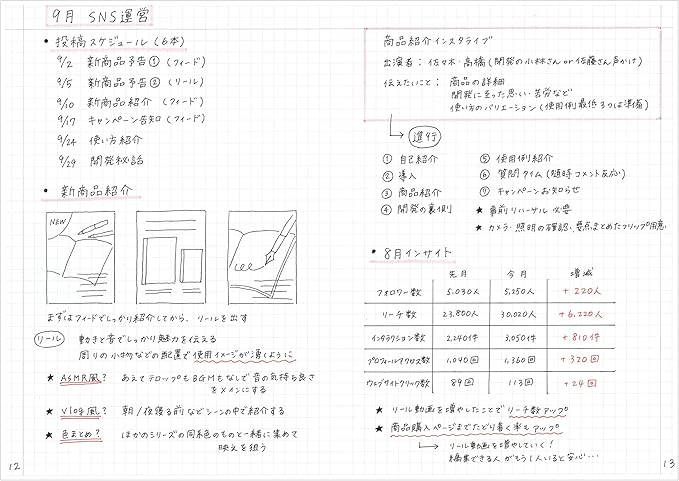 9月 SNS運営
• 投稿スケジュール (6本)
9/2 新商品予告① (フィード)
9/5 新商品予告② (リール)
9/10 新商品紹介 (フィード)
9/17 キャンペーン告知 (フィード)
9/24 使い方紹介
9/29 開発秘話
• 新商品紹介
NEW
まずはフィードでしっかり紹介してから、リールを出す
リール 動きと音でしっかり魅力を伝える
周りの小物などの配置で使用イメージが湧くように
★ ASMR風? あえてテロップもBGMもなしで音の気持ち良さ
をメインにする
★ Vlog風? 朝/夜寝る前などシーンの中で紹介する
★ 色まとめ? ほかのシリーズの同系色のものと一緒に集めて
映えを狙う
12
商品紹介インスタライブ
出演者: 佐々木・高橋 (開発の小林さん or 佐藤さん声かけ)
伝えたいこと: 商品の詳細
開発に至った思い・苦労など
使い方のバリエーション (使用例最低3つは準備)
進行
① 自己紹介
② 導入
③ 商品紹介
④ 開発の裏側
⑤ 使用例紹介
⑥ 質問タイム (随時コメント反応)
⑦ キャンペーンお知らせ
★ 事前リハーサル必要
★ カメラ・照明の確認、要点まとめたフリップ用意
• 8月インサイト
先月 今月 増減
フォロワー数 5,030人 5,250人 +220人
リーチ数 23,800人 30,020人 +6,220人
インタラクション数 2,240件 3,050件 +810件
プロフィールアクセス数 1,040回 1,360回 +320回
ウェブサイトクリック数 89回 113回 +24回
★ リール動画を増やしたことでリーチ数アップ
★ 商品購入ページまでたどり着く率もアップ
リール動画を増やしていく!
編集できる人がもう1人いると安心…
13